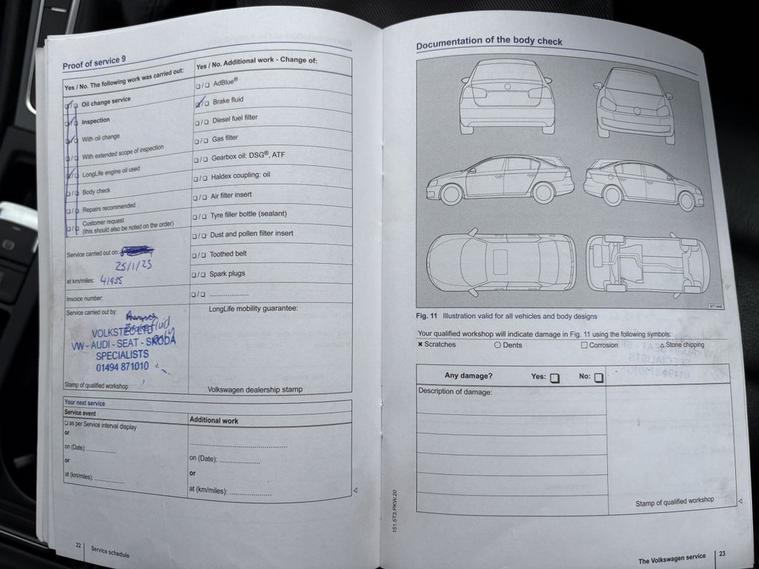 Proof of service 9
Yes / No. The following work was carried out:
☐/☐ Oil change service
☐/☐ Inspection
☐/☐ With oil change
☐/☐ With extended scope of inspection
☐/☐ LongLife engine oil used
☐/☐ Body check
☐/☐ Repairs recommended
☐/☐ Customer request
(this should also be noted on the order)
Service carried out on:
25/1/23
at km/miles: 41935
Invoice number:
Service carried out by:
Brake fluid
only
VOLKSTEC LTD
VW - AUDI - SEAT - SKODA
SPECIALISTS
01494 871010
Stamp of qualified workshop
Yes / No. Additional work - Change of:
☐/☐ AdBlue®
☑/☐ Brake fluid
☐/☐ Diesel fuel filter
☐/☐ Gas filter
☐/☐ Gearbox oil: DSG®, ATF
☐/☐ Haldex coupling: oil
☐/☐ Air filter insert
☐/☐ Tyre filler bottle (sealant)
☐/☐ Dust and pollen filter insert
☐/☐ Toothed belt
☐/☐ Spark plugs
☐/☐ ..................
LongLife mobility guarantee:
Volkswagen dealership stamp
Your next service
Service event
☐ as per Service interval display
or
on (Date): ..................
or
at (km/miles): ..................
Additional work
..................
on (Date): ..................
or
at (km/miles): ..................
22 Service schedule
Documentation of the body check
Fig. 11 Illustration valid for all vehicles and body designs
Your qualified workshop will indicate damage in Fig. 11 using the following symbols:
✖ Scratches ○ Dents □ Corrosion △ Stone chipping
Any damage? Yes: ☐ No: ☐
Description of damage:
Stamp of qualified workshop
151.5T3.PKW.20
The Volkswagen service 23